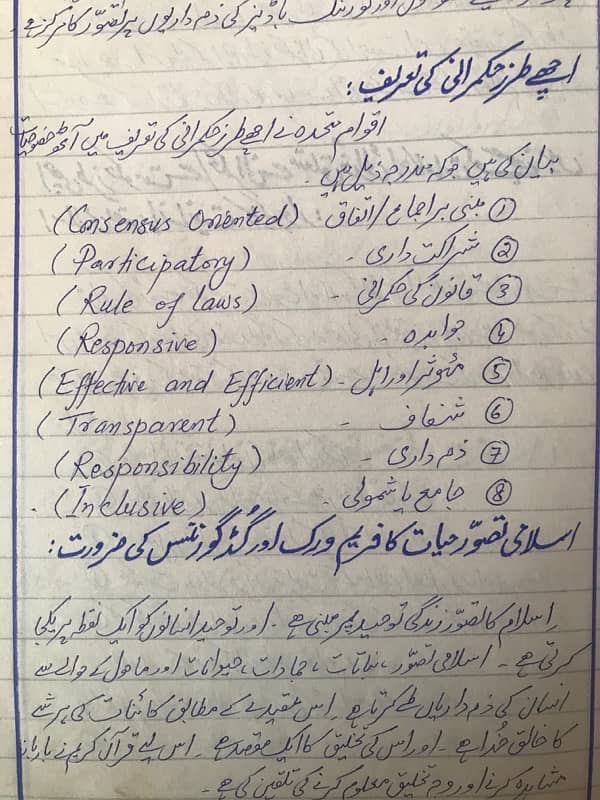 باڈیز کی ذمہ داریوں پر تصوّر کا مرکز ہے۔
اچھے طرز حکمرانی کی تعریف:
اقوام متحدہ نے اچھے طرز حکمرانی کی تعریف میں آٹھ خصوصیات
بیان کی ہیں جو کہ مندرجہ ذیل ہیں۔
① مبنی بر اجماع / اتفاق (Consensus Oriented)
② شراکت داری - (Participatory)
③ قانون کی حکمرانی - (Rule of laws)
④ جوابدہ - (Responsive)
⑤ مئوثر اور اہل - (Effective and Efficient)
⑥ شفاف - (Transparent)
⑦ ذمہ داری - (Responsibility)
⑧ جامع یا شمولی - (Inclusive)
اسلامی تصوّر حیات کا فریم ورک اور گُڈ گورننس کی ضرورت:
اسلام کا تصوّر زندگی توحید پر مبنی ہے۔ اور توحید انسانوں کو ایک نقطہ پر یکجا
کرتی ہے۔ اسلامی تصوّر، نباتات، جمادات، حیوانات اور ماحول کے حوالے سے
انسان کی ذمہ داریاں طے کرتا ہے۔ اس عقیدے کے مطابق کائنات کی ہر شے
کا خالق خُدا ہے۔ اور اس کی تخلیق کا ایک مقصد ہے۔ اس لیے قرآن کریم نے بار بار
مشاہدہ کرنے اور وجہ تخلیق معلوم کرنے کی تلقین کی ہے۔